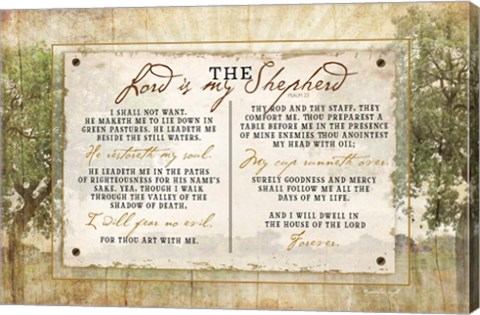 THE
Lord is my Shepherd
PSALM 23
I SHALL NOT WANT.
HE MAKETH ME TO LIE DOWN IN
GREEN PASTURES. HE LEADETH ME
BESIDE THE STILL WATERS.
He restoreth my soul.
HE LEADETH ME IN THE PATHS
OF RIGHTEOUSNESS FOR HIS NAME'S
SAKE. YEA, THOUGH I WALK
THROUGH THE VALLEY OF THE
SHADOW OF DEATH,
I will fear no evil.
FOR THOU ART WITH ME.
THY ROD AND THY STAFF, THEY
COMFORT ME. THOU PREPAREST A
TABLE BEFORE ME IN THE PRESENCE
OF MINE ENEMIES THOU ANOINTEST
MY HEAD WITH OIL;
My cup runneth over.
SURELY GOODNESS AND MERCY
SHALL FOLLOW ME ALL THE
DAYS OF MY LIFE.
AND I WILL DWELL IN
THE HOUSE OF THE LORD
Forever.